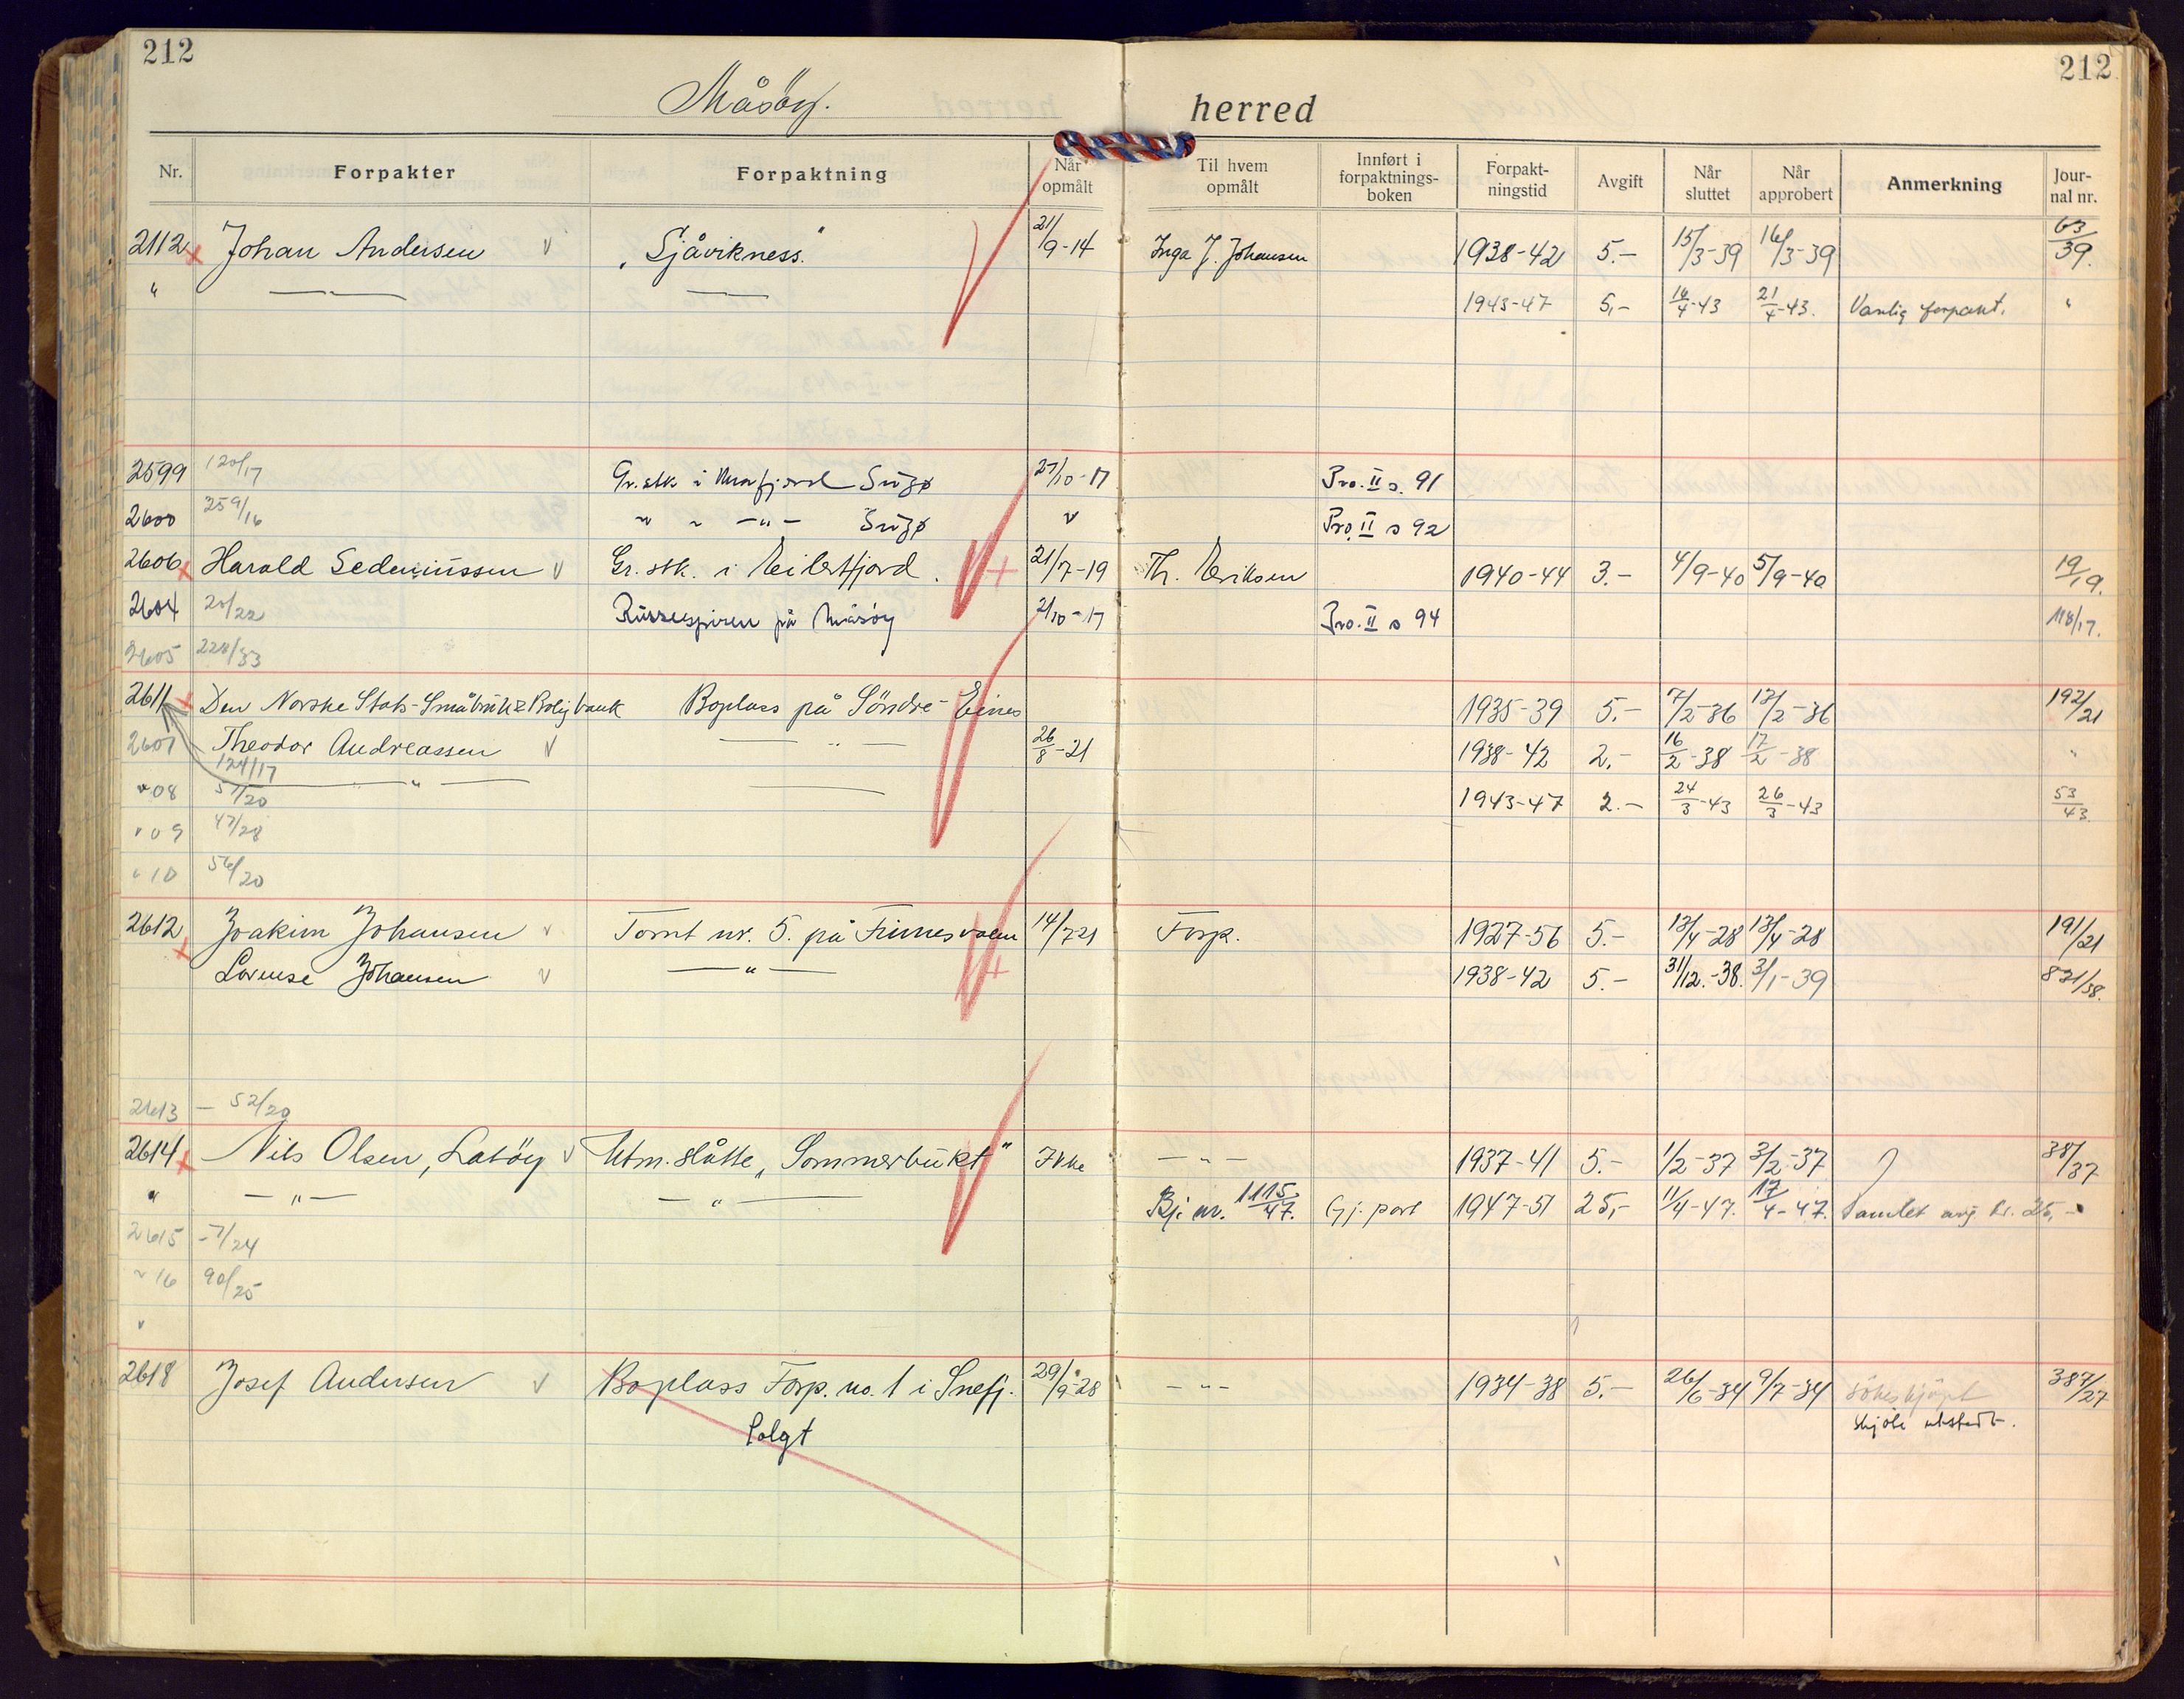 212 212
Måsöy. herred
Nr. Forpakter Forpaktning Når opmålt Til hvem opmålt Innført i forpaktnings-boken Forpakt-ningstid Avgift Når sluttet Når approbert Anmerkning Jour-nal nr.
2112 Johan Andersen v „Sjåvikness." 21/9-14 Inga J. Johansen 1938-42 5.- 15/3-39 16/3-39 63/39.
" — — 1943-47 5,- 14/4-43 21/4-43. Vanlig forpakt. "
2599 120/17 Gr.stk. i 27/10-17 Pro. II s. 91
2600 259/16 " " -"- v Pro. II s 92
2606 Harald Sedeniussen v Gr. stk. i Eilertfjord. 21/7-19 Th. Eriksen 1940-44 3.- 4/9-40 5/9-40 19/19.
2604 20/22 på Måsöy 2/10-17 Pro. II s 94 118/17.
2605 228/33
2611 Den Norske Stats-Småbruk & Boligbank Boplass på Söndre-Eines 1935-39 5.- 7/2-36 13/2-36 192/21
2607 Theodor Andreassen v — " — 26/8-21 1938-42 2.- 16/2-38 17/2-38 "
124/17
" 08 57/20 — " — — 1943-47 2.- 24/3-43 26/3-43 53/43.
" 09 47/28
" 10 56/20
2612 Joakim Johansen v Tomt nr. 5. på Finnesvaen 14/7-21 Forp. 1927-56 5.- 13/4-28 13/4-28 191/21
Lovense Johansen v — " — 1938-42 5.- 31/12.-38. 3/1-39 821/38.
2613 - 52/20
2614 Nils Olsen, Latöy v Utm. slåtte „Sommerbukt" Ikke - " - 1937-41 5.- 1/2-37 3/2-37 38/37
" - " - - " - Bj. nr. 1115/47. Gj. part 1947-51 25,- 11/4-47. 17/4-47. Samlet avg. kr. 25,-
2615 -7/24
" 16 90/25
"
2618 Josef Andersen v Boplass Forp. no. 1 i Snefj. 29/9-28 - " - 1934-38 5.- 26/6-34 9/7-34 sökes kjöpt 387/27
Solgt skjöte utstedt.